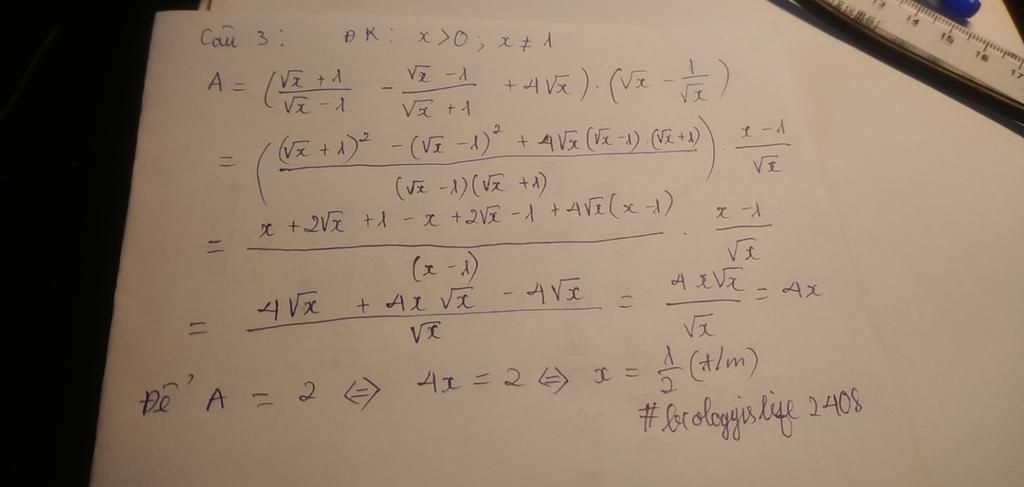 Câu 3: ĐK: x > 0; x ≠ 1
A = ((√x + 1)/(√x - 1) - (√x - 1)/(√x + 1) + 4√x) . (√x - 1/√x)
= (((√x + 1)² - (√x - 1)² + 4√x(√x - 1).(√x + 1))/((√x - 1)(√x + 1))) . (x - 1)/√x
= (x + 2√x + 1 - x + 2√x - 1 + 4√x(x - 1))/(x - 1) . (x - 1)/√x
= (4√x + 4x√x - 4√x)/√x = 4x√x/√x = 4x
Để A = 2 ⇔ 4x = 2 ⇔ x = 1/2 (t/m)
#biologyislife2408
13 14 15 16 17